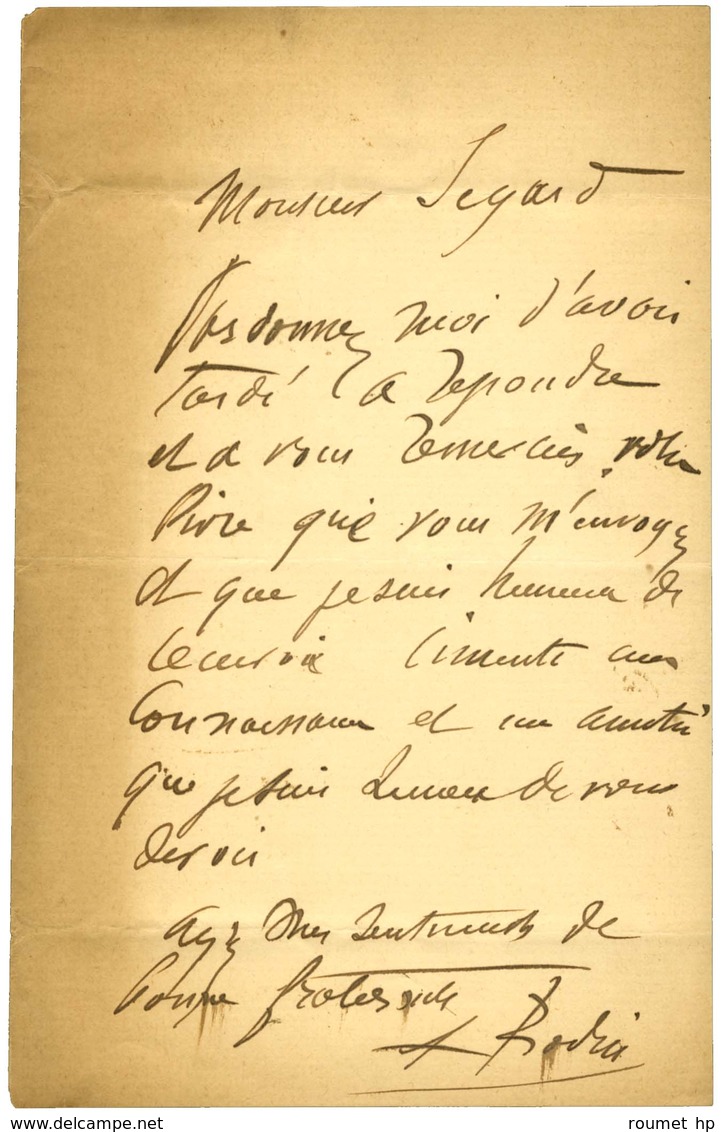 Monsieur Segard
Pardonnez moi d'avoir
tardé a repondre
et a vous remercier, votre
livre que vous m'envoyez
et que je suis heureux de
recevoir cimente une
connaissance et une amitié
que je suis heureux de vous
devoir
mes sentiments de
bonne fraternité
A Rodin
roumet hp